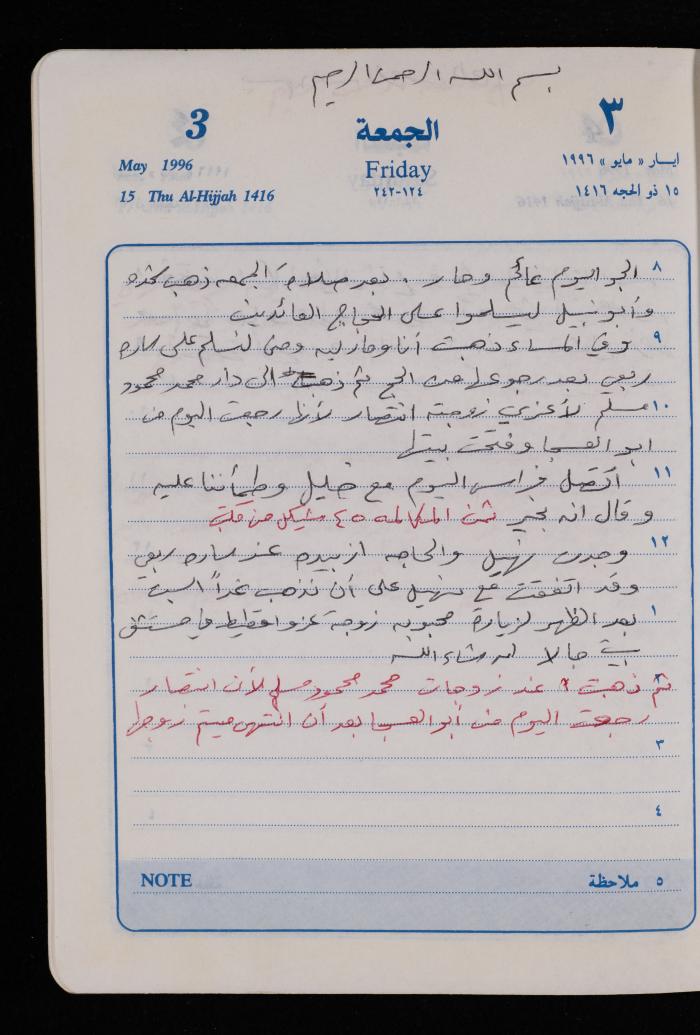 بسم الله الرحمن الرحيم
3 الجمعة ٣
May 1996 Friday ايار « مايو » ١٩٩٦
15 Thu Al-Hijjah 1416 ١٢٤-٢٤٢ ١٥ ذو الحجه ١٤١٦
٨ الجو اليوم غائم وحار . بعد صلاة الجمعه ذهب
وأبو نبيل ليسلموا على الحجاج العائدين
٩ وفي المساء ذهبت أنا وفازيه وحنى لنسلم على ساره
ربعي بعد رجوعها من الحج ثم ذهبت الى دار محمد محمود
١٠ مسلم لأعزي زوجته انتصار لأنها رجعت اليوم من
ابو العسجا وفتحت بيتها
١١ اتصل فراس اليوم مع خليل وطمأننا عليه
وقال انه بخير ثمن المكالمه ٤٥ شيكل من
١٢ وجدت نهيل والحاجه ازبيده عند ساره ربعي
وقد اتفقت مع نهيل على أن نذهب غداً السبت
١ بعد الظهر لزيارة محبوبه زوجة عزو اقطيط في مستشفى
بيت جالا ان شاء الله
٢ ثم ذهبت عند زوجات محمد محمود مسلم لأن انتصار
رجعت اليوم من أبو العسجا بعد أن انتهى ميتم زوجها
٣
٤
NOTE ٥ ملاحظة